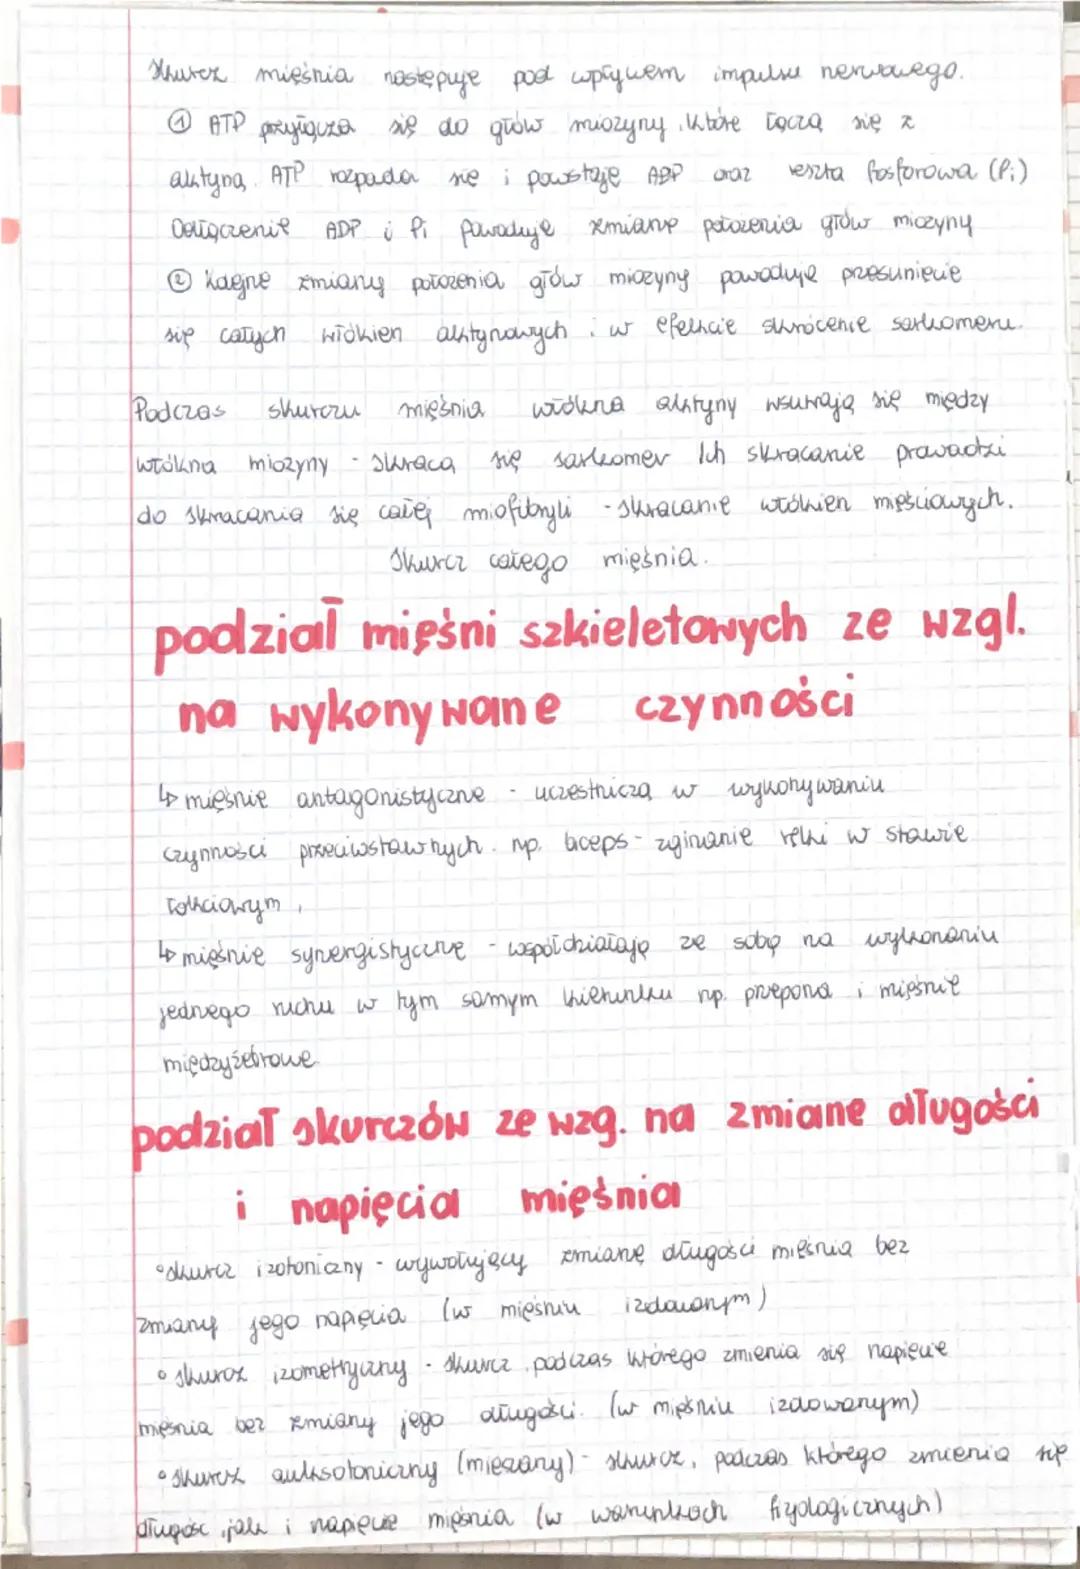 Skurcz mięśnia następuje pod wpływem impulsu nerwowego.
① ATP przyłącza się do głów miozyny, które łączą się z
aktyną. ATP rozpada się i powstaje ADP oraz reszta fosforowa (Pi)
Odłączenie ADP i Pi powoduje zmianę położenia głów miozyny
② Kolejne zmiany położenia głów miozyny powoduje przesunięcie
się całych włókien aktynowych i w efekcie skrócenie sarkomeru.
Podczas skurczu mięśnia włókna aktyny wsuwają się między
włókna miozyny - skraca się sarkomer Ich skracanie prowadzi
do skracania się całej miofibryli - skracanie włókien mięśniowych.
Skurcz całego mięśnia.
podział mięśni szkieletowych ze wzgl.
na wykonywane czynności
↳ mięśnie antagonistyczne - uczestniczą w wykonywaniu
czynności przeciwstawnych. np. biceps - zginanie ręki w stawie
łokciowym,
↳ mięśnie synergistyczne - współdziałają ze sobą na wykonaniu
jednego ruchu w tym samym kierunku np. przepona i mięśnie
międzyżebrowe.
podział skurczów ze wzg. na zmiane długości
i napięcia mięśnia
° skurcz izotoniczny - wywołujący zmianę długości mięśnia bez
zmiany jego napięcia (w mięśniu izdowanym)
° skurcz izometryczny - skurcz, podczas którego zmienia się napięcie
mięśnia bez zmiany jego długości. (w mięśniu izdowanym)
° skurcz auksotoniczny (mieszany) - skurcz, podczas którego zmienia się
długość, jak i napięcie mięśnia (w warunkach fizjologicznych)